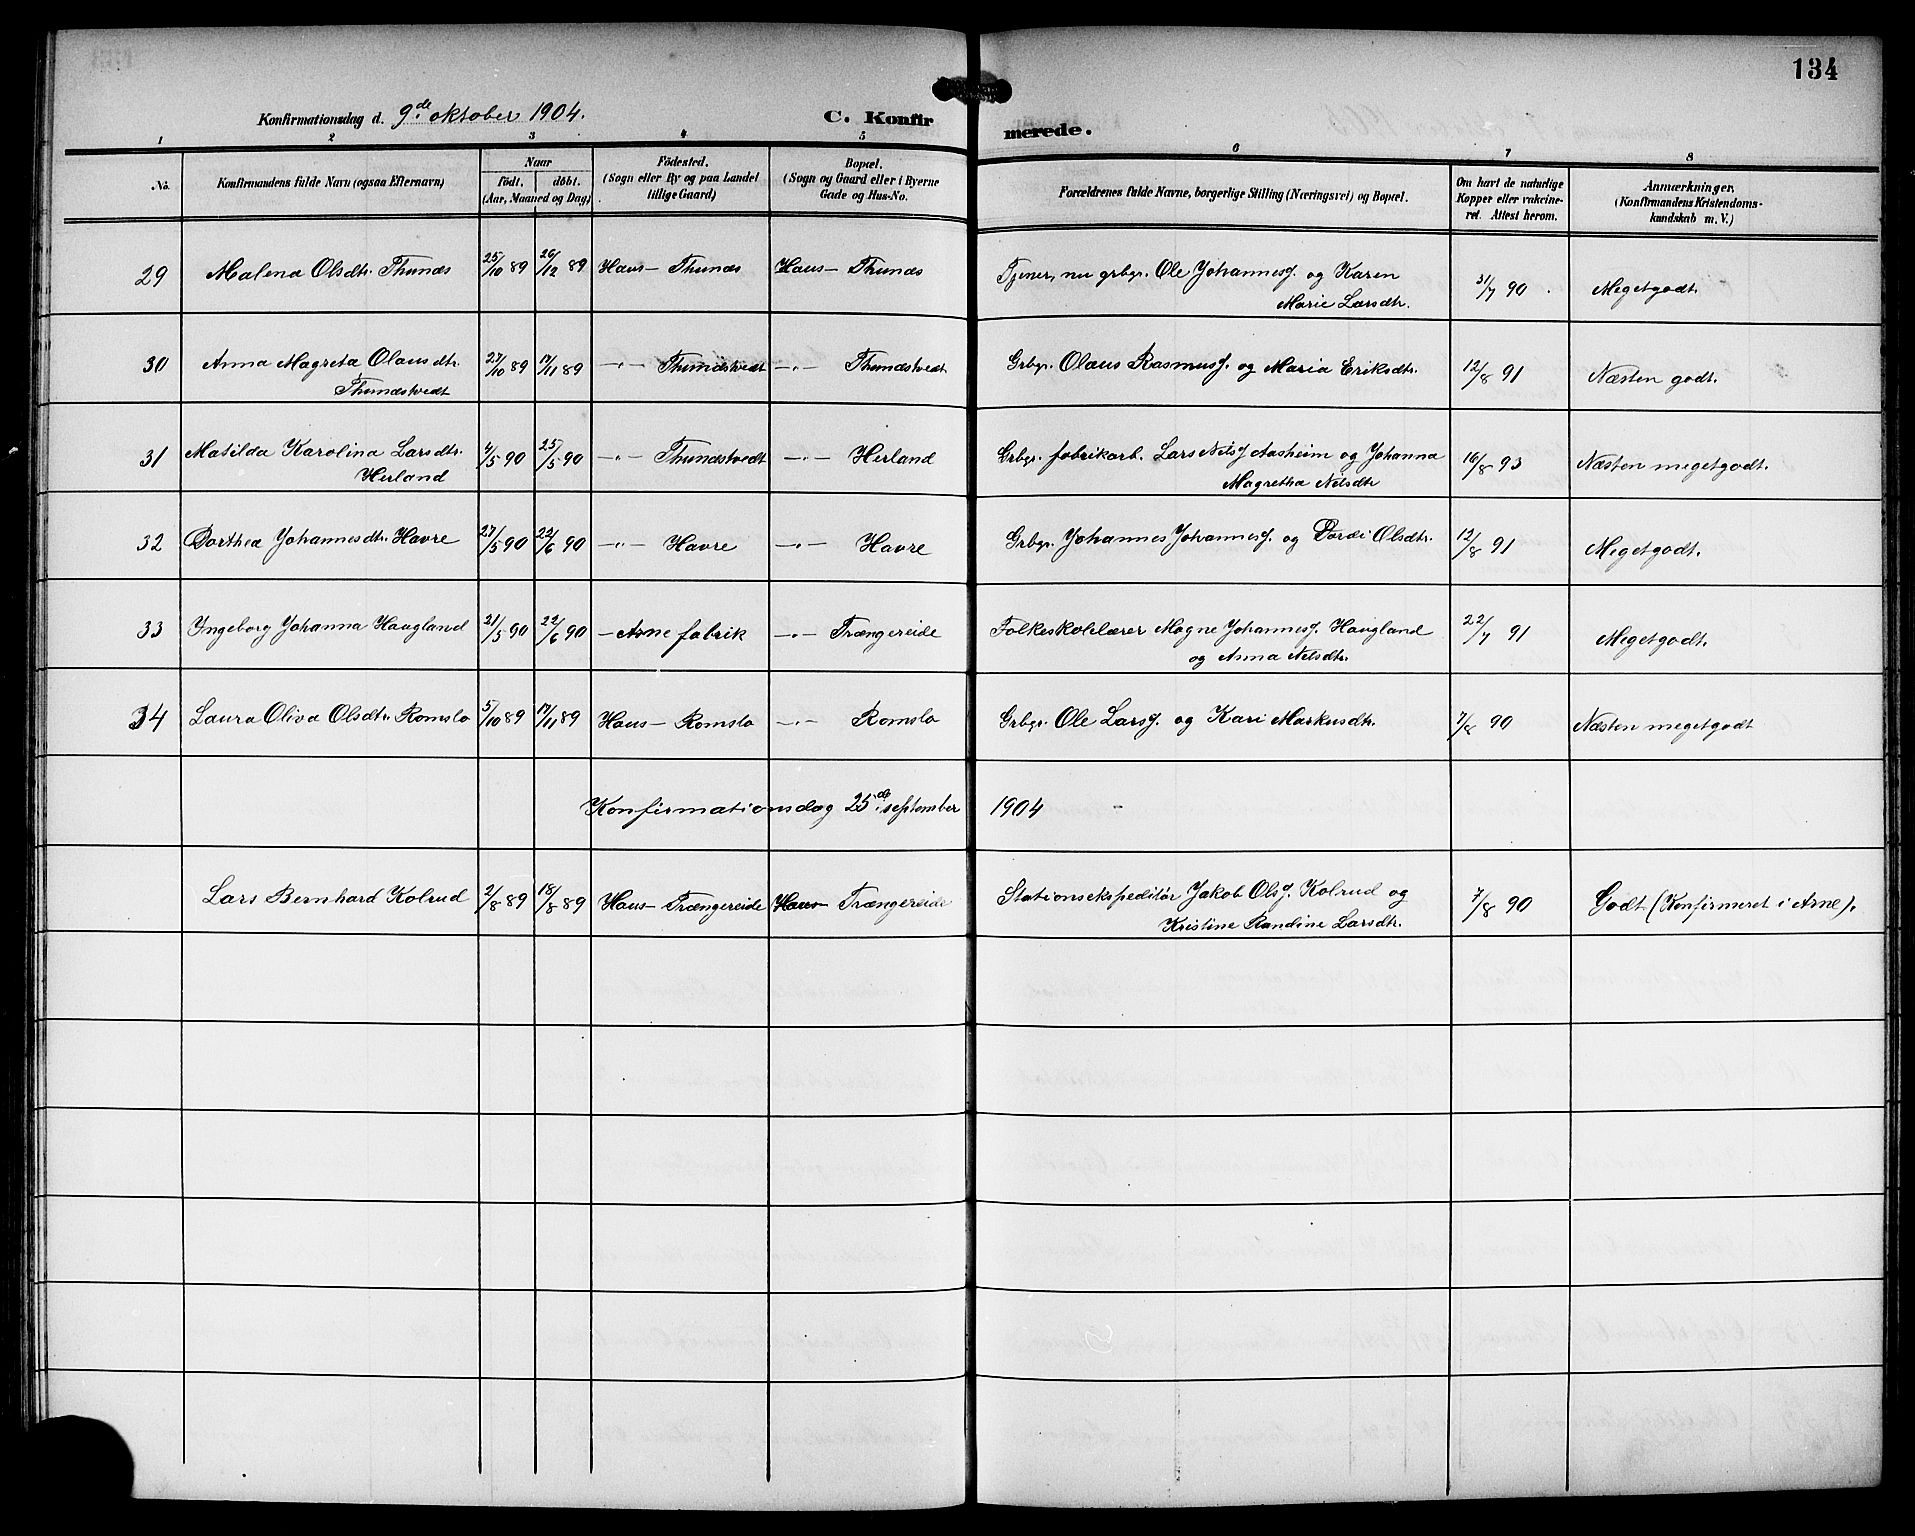 134
Konfirmationsdag d. 9de oktober 1904. C. Konfirmerede.
1 2 3 4 5 6 7 8
No. Konfirmandens fulde Navn (ogsaa Efternavn) Naar födt. döbt. (Aar, Maaned og Dag) Födested. (Sogn eller By og paa Landet tillige Gaard) Bopæl. (Sogn og Gaard eller i Byerne Gade og Hus-No. Forældrenes fulde Navne, borgerlige Stilling (Næringsvei) og Bopæl. Om havt de naturlige Kopper eller vakcineret. Attest herom. Anmærkninger. (Konfirmandens Kristendomskundskab m. V.)
29 Malena Olsdtr. Thunæs 25/10 89 26/12 89 Haus - Thunæs Haus - Thunæs Tjener, nu grbgr. Ole Johannesf. og Karen 31/7 90 Megetgodt.
Marie Larsdtr.
30 Anna Magreta Olausdtr. 27/10 89 17/11 89 -"- Thunæstvedt -"- Thunæstvedt Grbgr. Olaus Rasmusf. og Maria Eriksdtr. 12/8 91 Næsten godt.
Thunæstvedt
31 Matilda Karolina Larsdtr. 4/5 90 25/5 90 -"- Thunæstvedt -"- Herland Grbgr. fabrikarb. Lars Nilsf. Aasheim og Johanna 16/8 93 Næsten megetgodt.
Herland Magretha Nilsdtr
32 Dorthea Johannesdtr. Havre 27/5 90 22/6 90 -"- Havre -"- Havre Grbgr. Johannes Johannesf. og Dordi Olsdtr. 12/8 91 Megetgodt.
33 Yngeborg Johanna Haugland 21/5 90 22/6 90 - Arne fabrik -"- Trængereide Folkeskolelærer Magne Johannesf. Haugland 22/7 91 Megetgodt.
og Anna Nilsdtr.
34 Laura Oliva Olsdtr. Romslo 5/10 89 17/11 89 Haus - Romslo -"- Romslo Grbgr. Ole Larsf. og Kari Markusdtr. 7/8 90 Næsten megetgodt
Konfirmationsdag 25de september 1904
Lars Bernhard Kolrud 2/8 89 18/8 89 Haus - Trængereide Haus - Trængereide Stationsekspeditör Jakob Olsf. Kolrud og 7/8 90 Godt (Konfirmeret i Arne).
Kristine Randine Larsdtr.